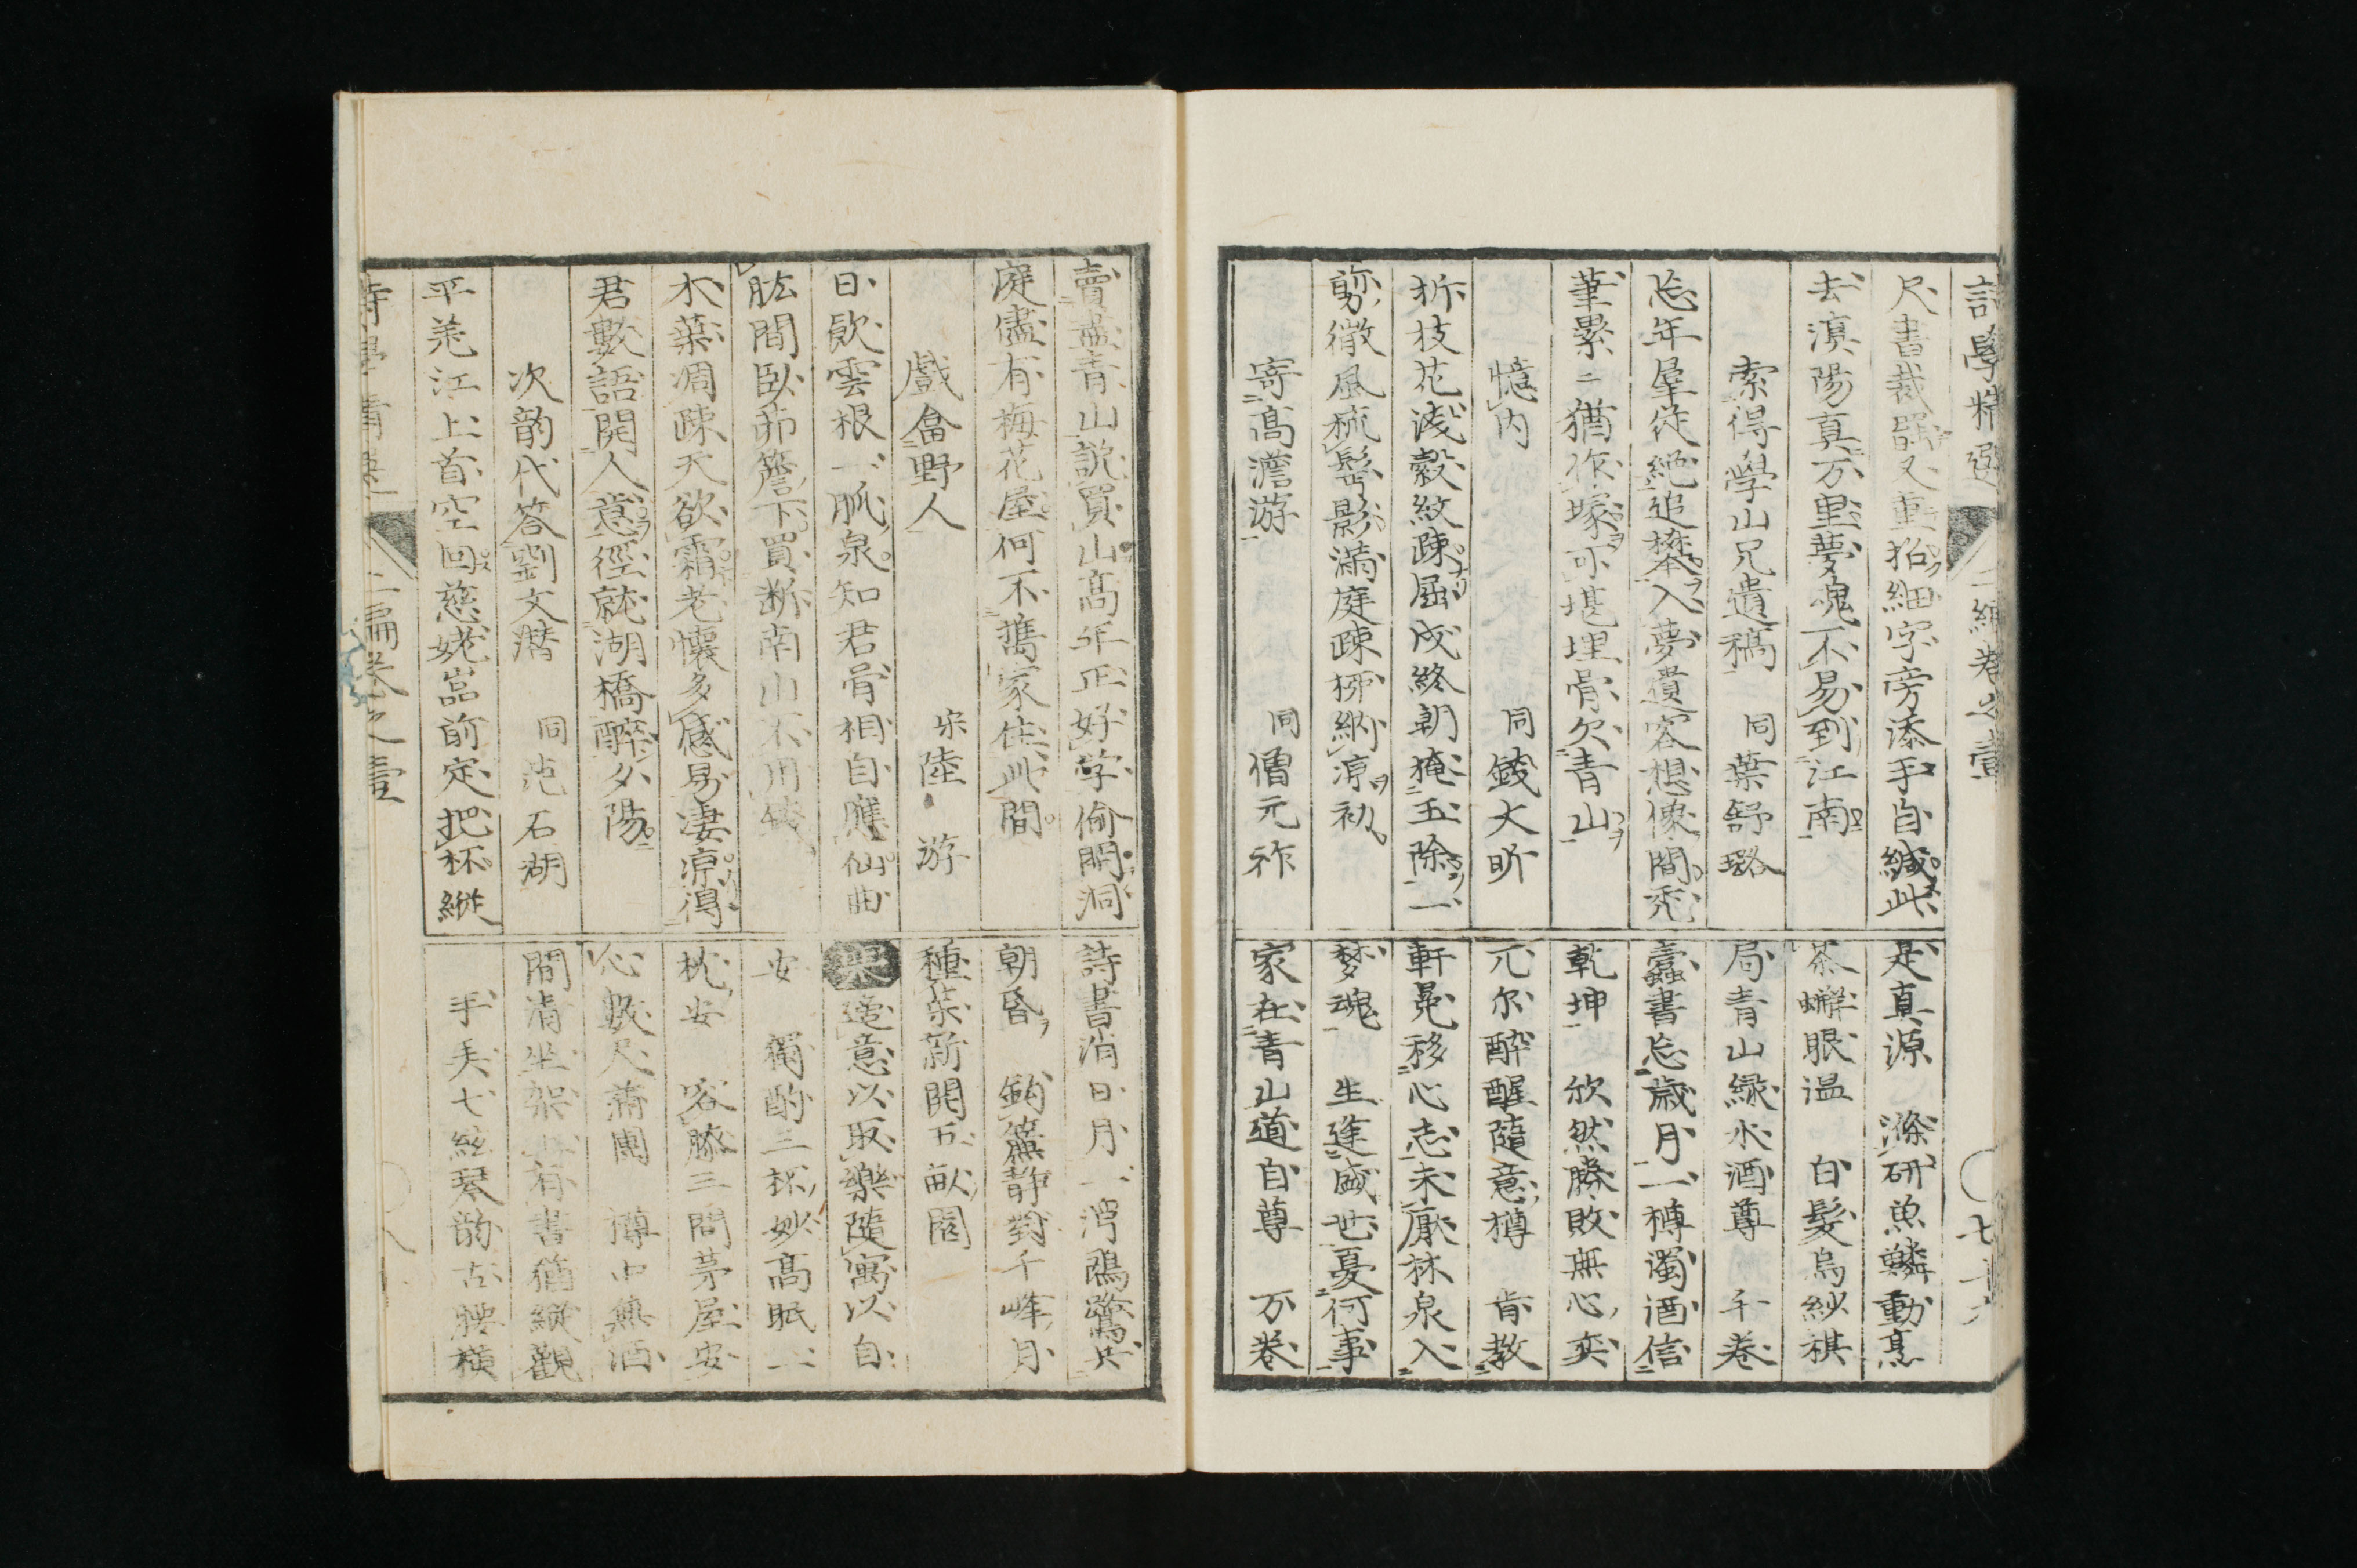 詩學精選 二編卷之壹
尺書裁罷又重拈細字旁添手自緘此
去滇陽真万里夢魂不易到江南
索得學山兄遺稿 同葉舒璐
忘年羣從絶追攀入夢遺容想像間禿
筆累〻猶作塚可堪埋骨欠青山
憶内 同錢大昕
折枝花淺縠紋疎屈戍終朝掩玉除一
剪微風梳髩影滿庭疎柳納凉初
寄高澹游 同僧元祚
是真源 滌研魚鱗動烹
茶蠏眼温 白髮烏紗棋
局青山緑水酒尊 千巻
蠹書忘歳月一樽濁酒信
乾坤 欣然勝敗無心奕
兀尓酔醒隨意樽 肯教
軒冕移心志未厭林泉入
梦魂 生逢盛世憂何事
家在青山道自尊 万巻
賣盡青山説買山高年正好学偷閒洞
庭儘有梅花屋何不携家住此間
戲畣野人 宋陸游
日飲雲根一脈泉知君骨相自應仙曲
肱間臥茆簷下買断南山不用錢
木葉凋疎天欲霜老懷多感易凄凉得
君數語開人意徑就湖橋醉夕陽
次韵代答劉文潜 同范石湖
平羌江上首空回慈姥嵓前定把杯縱
詩書消日月一湾鴎鷺共
朝昏 鈎簾静對千峰月
種菜新開五畝園
適意以取樂隨寓以自
安 獨酌三杯妙高眠一
枕安 容膝三間茅屋安
心數尺蒲團 樽中無酒
間清坐架上有書猶縱觀
手 手〻七絃琴韵古腰横
詩學精選 二編卷之壹